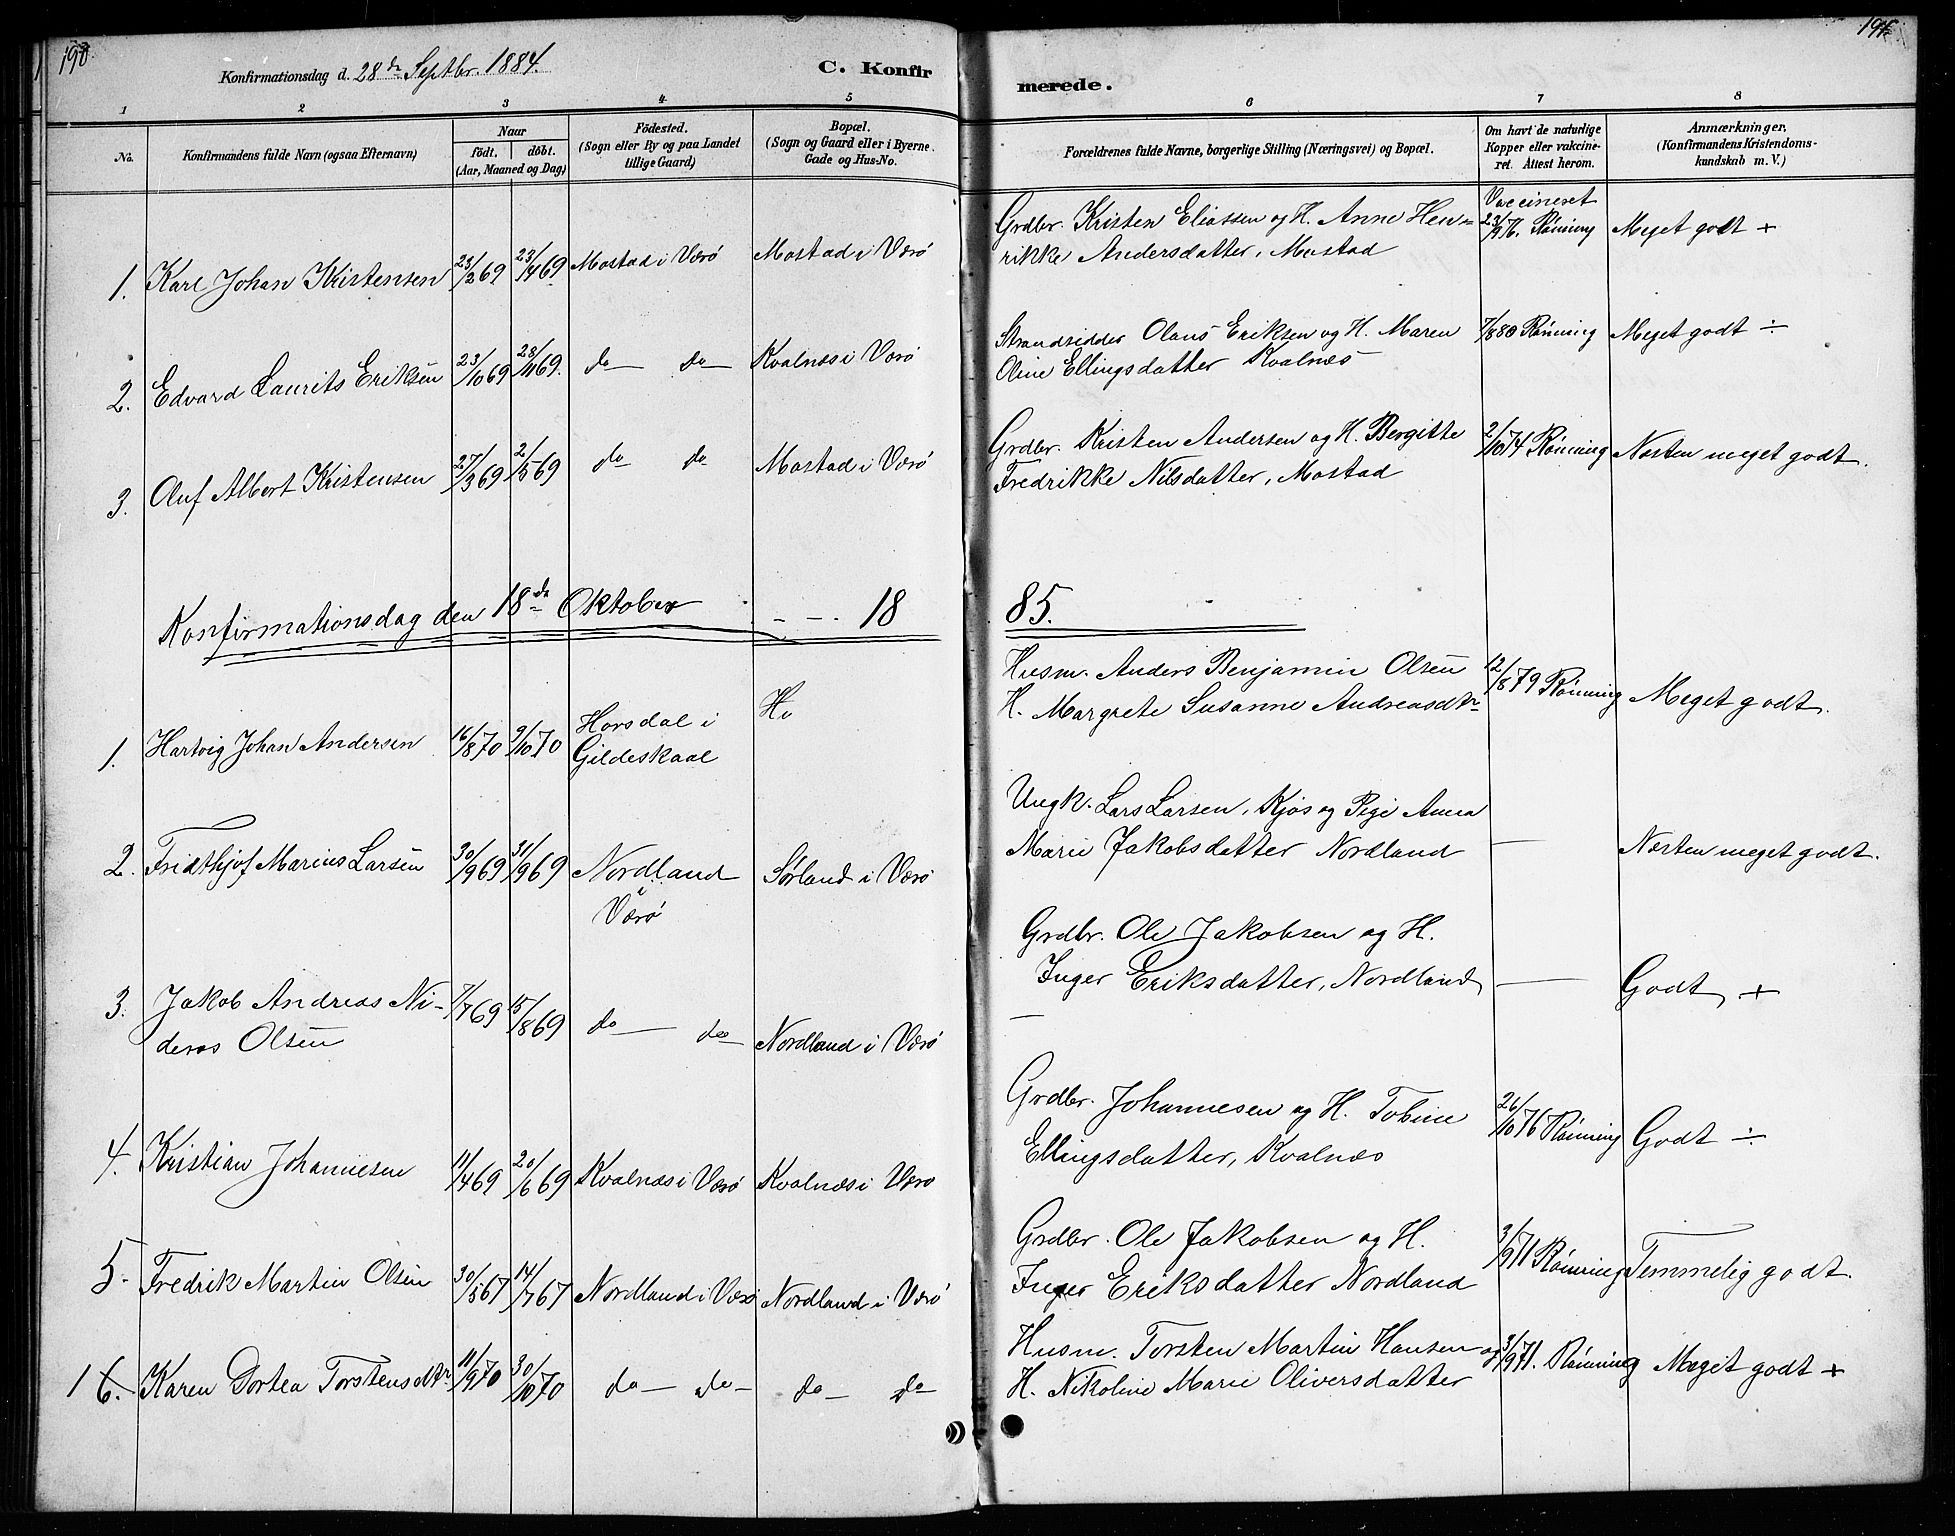 190
191
Konfirmationsdag d. 28de Septbr. 1884.
C. Konfir
merede.
1 2 3 4 5 6 7 8
No.
Konfirmandens fulde Navn (ogsaa Efternavn)
Naar
födt. döbt.
(Aar, Maaned og Dag)
Födested.
(Sogn eller By og paa Landet
tillige Gaard)
Bopæl.
(Sogn og Gaard eller i Byerne
Gade og Hus-No.
Forældrenes fulde Navne, borgerlige Stilling (Næringsvei) og Bopæl.
Om havt de naturlige
Kopper eller vakcine-
ret. Attest herom.
Anmærkninger.
(Konfirmandens Kristendoms-
kundskab m. V.)
1. Karl Johan Kristensen 23/2 69 23/4 69 Mostad i Værö Mostad i Værö
Grdbr. Kristen Eliassen og H. Anne Hen=
rikke Andersdatter, Mostad
Vaccineret
23/9 76. Rönning
Meget godt +
2. Edvard Laurits Eriksen 23/10 69 28/11 69. do do Kvalnæs i Værö
Strandsidder Olaus Eriksen og H. Maren
Oline Ellingsdatter Kvalnæs
7/8 80 Rönning
Meget godt ÷
3. Oluf Albert Kristensen 27/3 69 2/5 69 do do Mostad i Værö
Grdbr. Kristen Andersen og H. Bergitte
Fredrikke Nilsdatter, Mostad
2/10 74 Rönning
Næsten meget godt.
Konfirmationsdag den 18de Oktober - - - 18 85.
1. Hartvig Johan Andersen 16/8 70 9/10 70
Horsdal i
Gildeskaal
Ho
Husm. Anders Benjamin Olsen
H. Margrete Susanne Andreasdtr
12/8 79 Rönning
Meget godt.
2. Fridthjof Marius Larsen 30/9 69 31/9 69
Nordland
i
Værö
Sörland i Værö
Ungk. Lars Larsen, Kjös og Pige Anna
Marie Jakobsdatter Nordland
—
Næsten meget godt.
3. Jakob Andreas Ni-
deros Olsen
7/7 69 15/8 69 do do Nordland i Værö
Grdbr. Ole Jakobsen og H.
Inger Eriksdatter, Nordland
—
Godt +
4. Kristian Johannesen 11/4 69 20/6 69 Kvalnæs i Værö Kvalnæs i Værö
Grdbr. Johannesen og H. Tobine
Ellingsdatter, Kvalnæs
26/10 76 Rönning
Godt ÷
5. Fredrik Martin Olsen 30/5 67 14/7 67 Nordland i Værö Nordland i Værö
Grdbr. Ole Jakobsen og H.
Inger Eriksdatter Nordland
3/9 71 Rönning
Temmelig godt.
1 6. Karen Dortea Torstensdtr 11/9 70 30/10 70 do do do do
Husm. Torsten Martin Hansen og
H. Nikoline Marie Oliversdatter
3/9 71. Rönning
Meget godt +